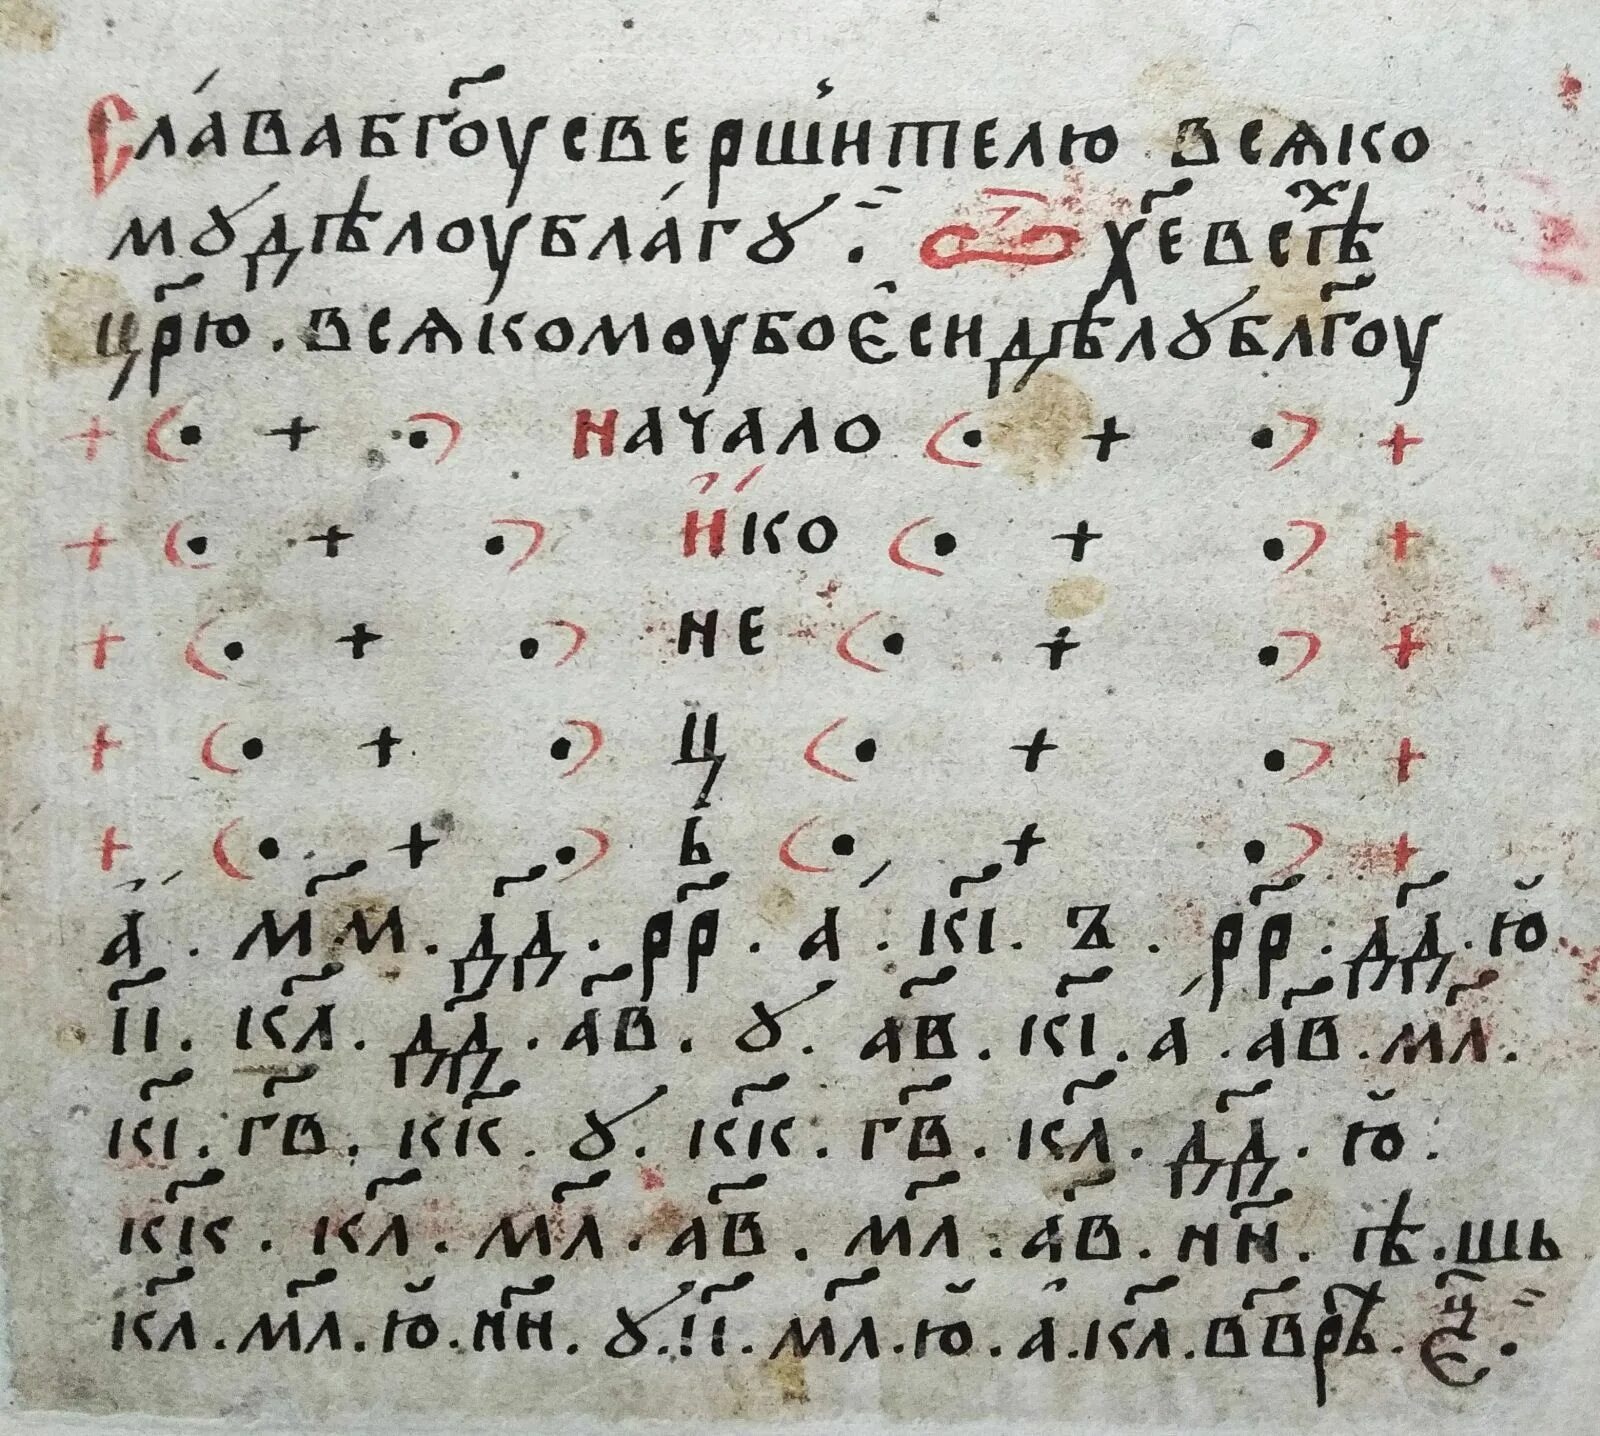 Сла́вабг҃оусверши́телю всѧко
мꙋ́дѣлоубла́гꙋ . Ѽ хе҃всѣⷯ
цр҃ю . всѧкомоубоє̂сидѣлꙋблг҃оу
+ ( • + • ) начало ( • + • ) +
+ ( • + • ) и҆́ко ( • + • ) +
+ ( • + • ) не ( • + • ) +
+ ( • + • ) ц ( • + • ) +
+ ( • + • ) ь ( • + • ) +
а҆́ . м҃м . д҃д . р҃р . а . к҃і . z . р҃р . д҃д . ю̆
і҃і . к҃л . д҃д . а҃в . ꙋ . а҃в . к҃і . а . а҃в . м҃л .
к҃і . г҃в . к҃к . ꙋ . к҃к . г҃в . к҃л . д҃д . ю̆ .
к҃к . к҃л . м҃л . а҃в . м҃л . а҃в . н҃н . ѣ . шь
к҃л . м҃л . ю̆ . н҃н . ꙋ . і҃і . м҃л . ю̆ . а̂ . к҃л . в҃врѣ . єⷰ҇ .